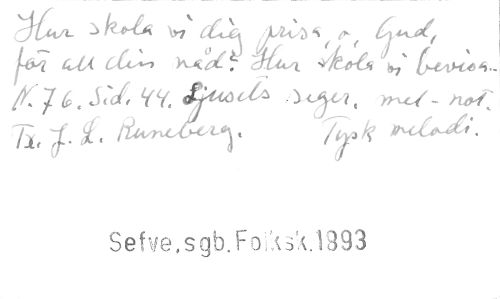 Hur skola vi dig prisa, o, Gud,
för all din nåd? Hur skola vi bevisa-
N. 76. Sid. 44. Ljusets seger. mel-not.
Tx. J. L. Runeberg. Tysk melodi.
Sefve, sgb. Folksk. 1893